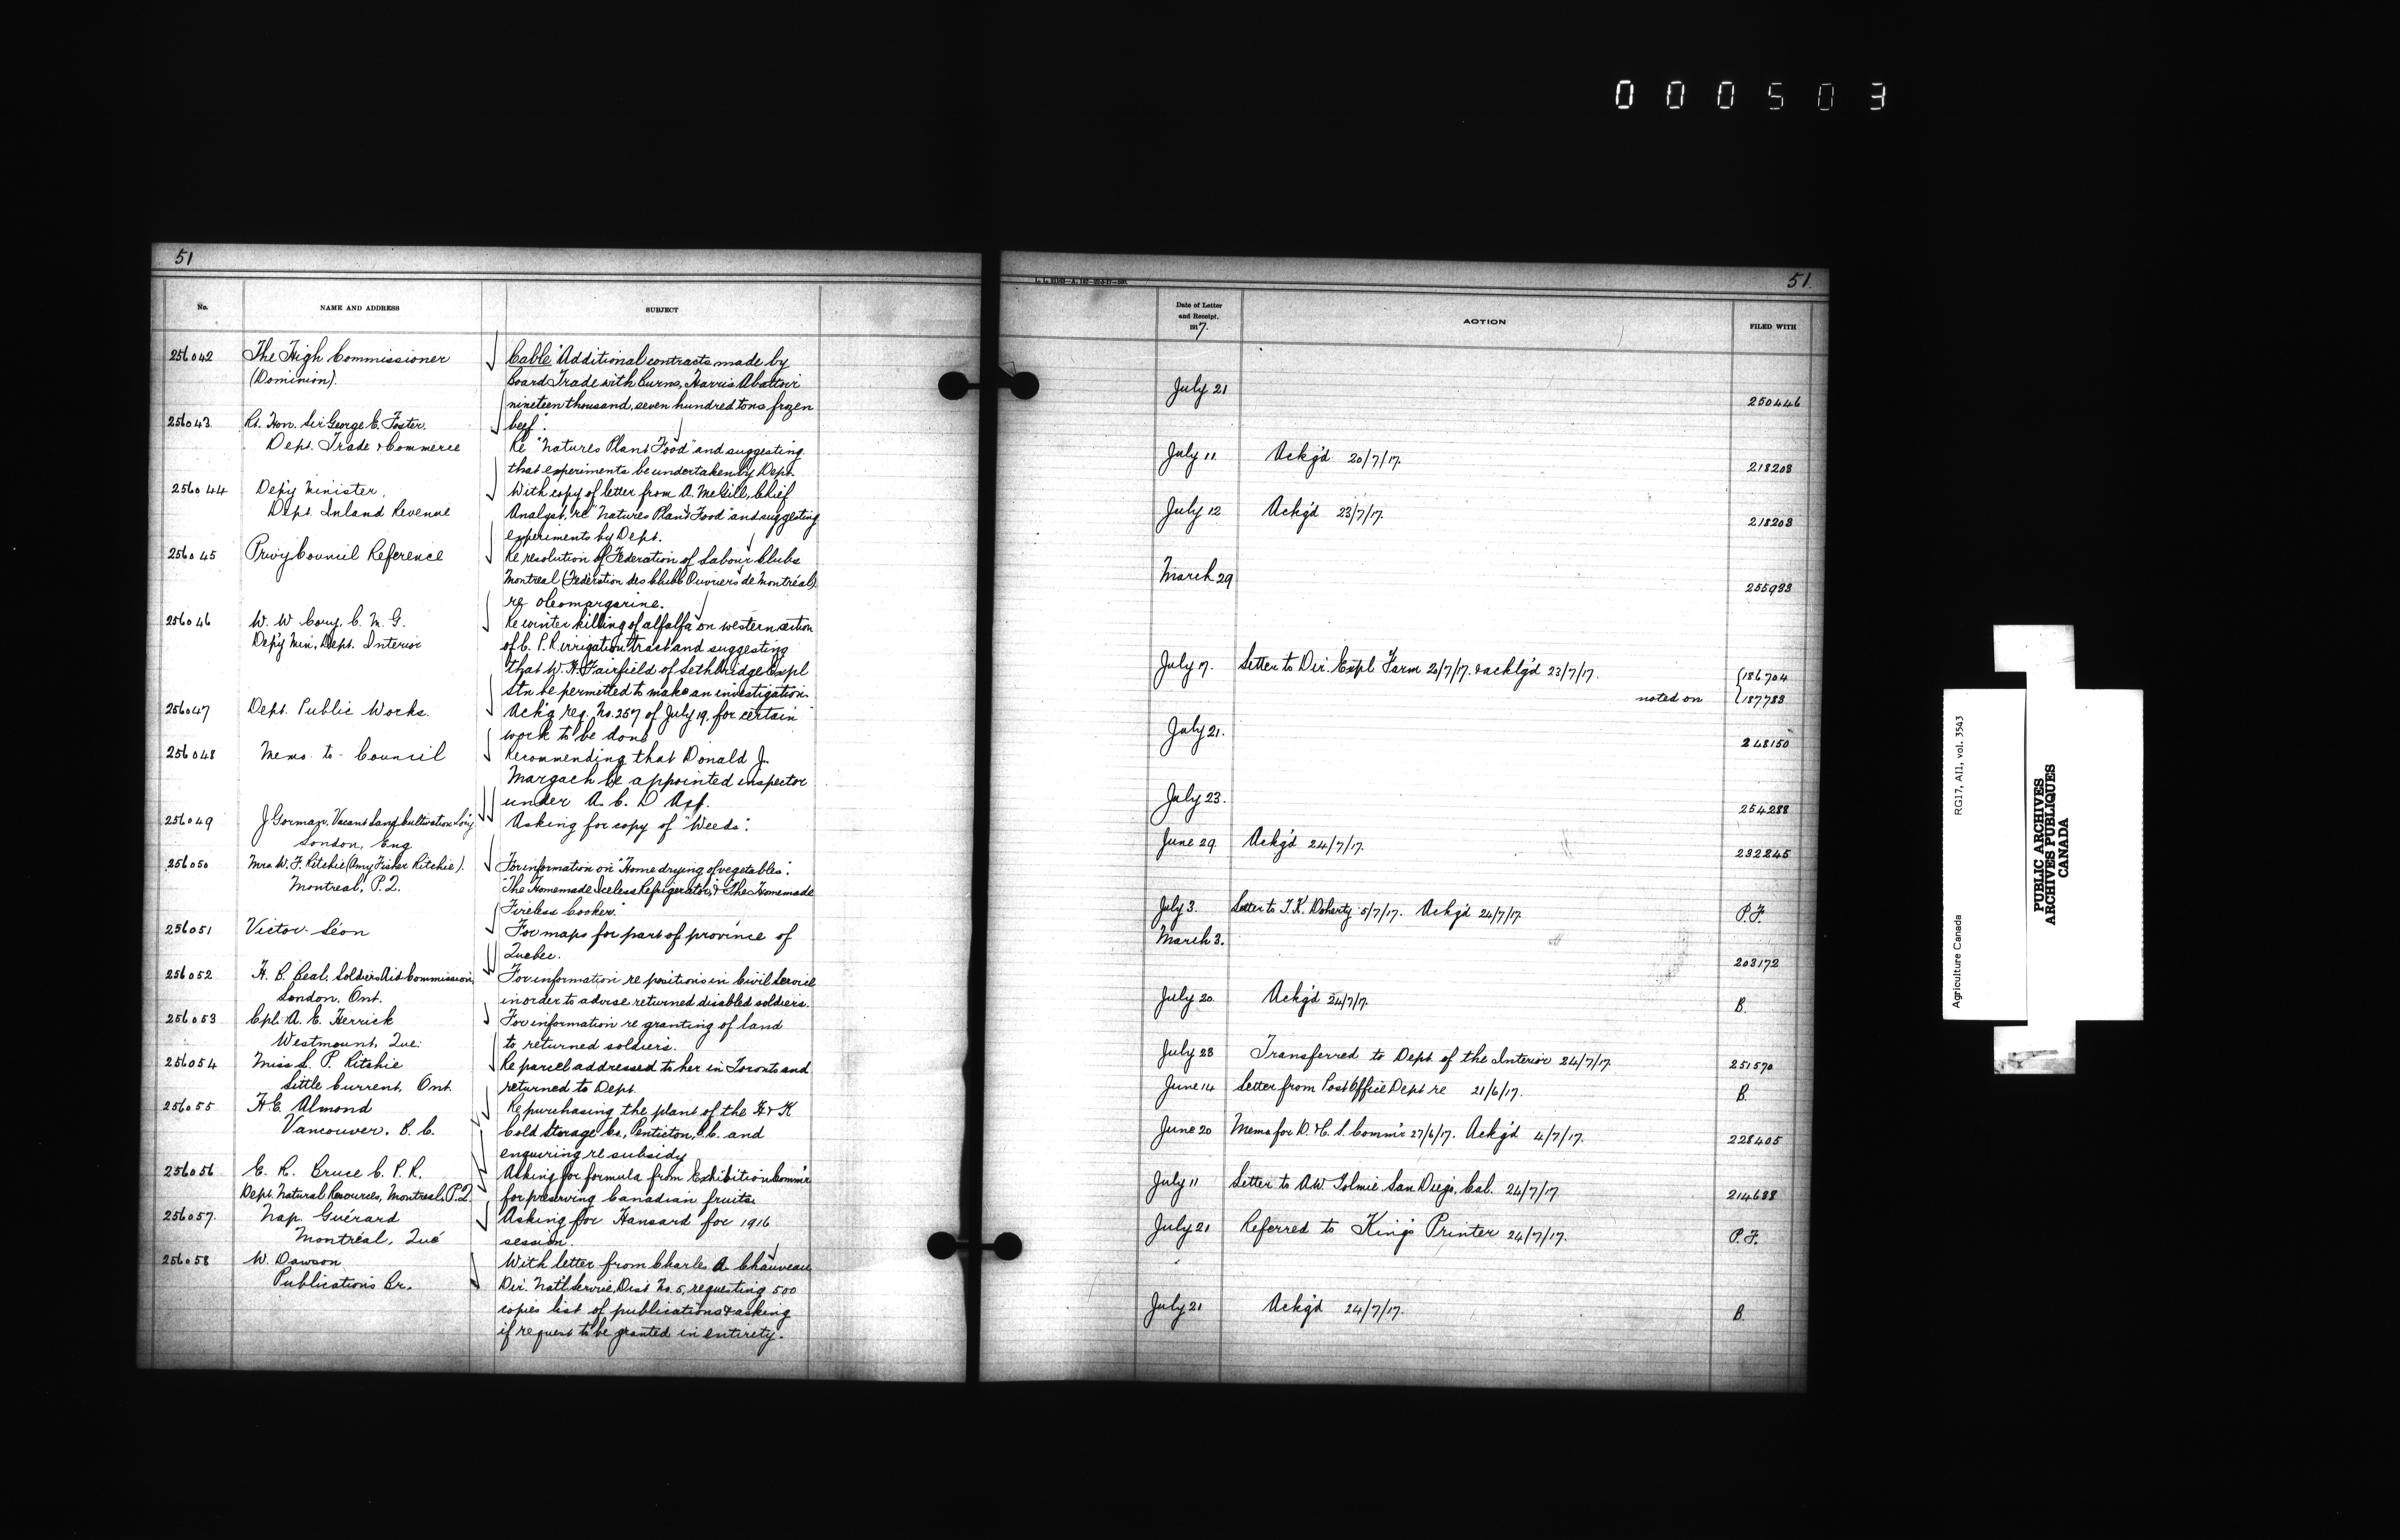 000503
51
No.
NAME AND ADDRESS
SUBJECT
256042
The High Commissioner
(Dominion).
Cable "Additional contracts made by
Board Trade with Burns, Harris Abattoir
nineteen thousand, seven hundred tons frozen
beef".
256043
Rt. Hon. Sir George E. Foster.
Dept. Trade & Commerce
Re "Natures Plant Food" and suggesting
that experiments be undertaken by Dept.
256044
Dep'y Minister,
Dept. Inland Revenue
With copy of letter from A. McGill, Chief
Analyst, re "Natures Plant Food" and suggesting
experiments by Dept.
256045
Privy Council Reference
Re resolution of Federation of Labour Clubs
Montreal (Fédération des Clubs Ouvriers de Montréal)
re oleomargarine.
256046
W. W. Cory, C. M. G.
Dep'y Min., Dept. Interior
Re winter killing of alfalfa on western section
of C. P. R. irrigation tract and suggesting
that W. H. Fairfield of Lethbridge Expl
Stn be permitted to make an investigation.
256047
Dept. Public Works.
Ack'g req. No. 257 of July 19, for certain
work to be done
256048
Memo. to Council
Recommending that Donald J.
Margach be appointed inspector
under A. C. D Act.
256049
J Gorman, Vacant Land Cultivation Soc'y
London, Eng
Asking for copy of "Weeds".
256050
Mrs W. F. Ritchie (Amy Fisher Ritchie).
Montreal, P.Q.
For information on "Home drying of vegetables".
"The Homemade Iceless Refrigerator," & "The Homemade
Fireless Cooker."
256051
Victor Léon
For maps for part of province of
Quebec.
256052
H. B. Beal, Soldiers Aid Commission,
London, Ont.
For information re positions in Civil Service
in order to advise returned disabled soldiers.
256053
Cpl. A. E. Herrick
Westmount, Que.
For information re granting of land
to returned soldiers.
256054
Miss L. P. Ritchie
Little Current, Ont.
Re parcel addressed to her in Toronto and
returned to Dept.
256055
H.E. Almond
Vancouver, B. C.
Re purchasing the plant of the H & K
Cold Storage Co., Penticton, B.C. and
enquiring re subsidy
256056
E. R. Bruce C. P. R.
Dept. Natural Resources, Montreal, P.Q.
Asking for formula from Exhibition Comm'r
for preserving Canadian fruits
256057.
Nap. Guérard
Montréal, Qué
Asking for "Hansard" for 1916
session.
256058
W. Dawson
Publications Br.
With letter from Charles A Chauveau
Dir. Nat'l Service, Dist No. 5, requesting 500
copies list of publications & asking
if request to be granted in entirety.
51
Date of Letter
and Receipt.
1917.
ACTION
FILED WITH
July 21
250446
July 11
Ackg'd 20/7/17.
218203
July 12
Ackg'd 23/7/17.
218203
March 29
255933
July 17.
Letter to Dir. Expl Farm 20/7/17. & acklg'd 23/7/17.
{186704
noted on
{187783
July 21.
248150
July 23.
254288
June 29
Ackg'd 24/7/17.
232245
July 3.
Letter to T.K. Doherty 5/7/17. Ackg'd 24/7/17
P.F.
March 3.
203172
July 20
Ackg'd 24/7/17
B.
July 23
Transferred to Dept of the Interior 24/7/17.
251570
June 14
Letter from Post Office Dept re 21/6/17.
B.
June 20
Memo for D. & C. S. Comm'r 27/6/17. Ackg'd 4/7/17.
228405
July 11
Letter to A.W. Tolmie San Diego, Cal. 24/7/17
214638
July 21
Referred to King's Printer 24/7/17.
P.F.
July 21
Ackg'd 24/7/17.
B
Agriculture Canada
RG17, A11, vol. 3543
PUBLIC ARCHIVES
ARCHIVES PUBLIQUES
CANADA